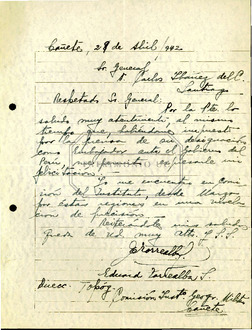 Cañete, 29 de Abil/942
Sr. General
D. Carlos Ibáñez del C.
Santiago
Respetado Sr. General:
Por la Pte. lo
saludo muy atentamente, al mismo
tiempo que, habiéndome impuesto
por la prensa de su designación
como Embajador ante el Gobierno del
Perú, me permito expresarle mi
felicitación.
Yo me encuentro en comi
sión del Instituto, desde Marzo
por estas regiones en una nivela
ción de precisión.
Reiterándole mis saludos
queda de Ud. muy atto. y S.S.
JTorrealba
Eduardo Torrealba S.
Direcc. Topóg.
Comisión Inst. Geog. Militar
Cañete